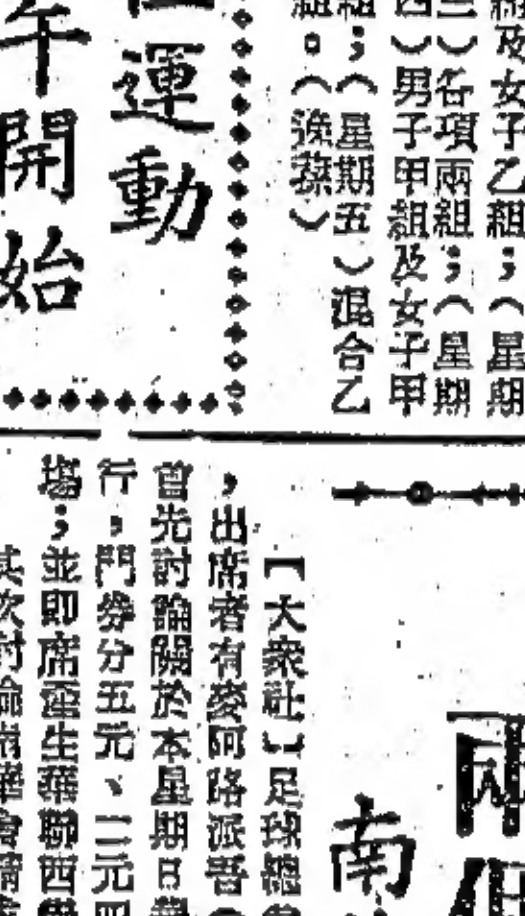 組及女子乙組；（星期
三）各項兩組；（星期
四）男子甲組及女子甲
組；（星期五）混合乙
組。（
運動
午開始
兩
南
【大衆社】足球總
，出席者有麥阿路派吾
首先討論關於本星期日
行，門券分五元、二元四
塲；並即席產生華聯西
其次討論南華會